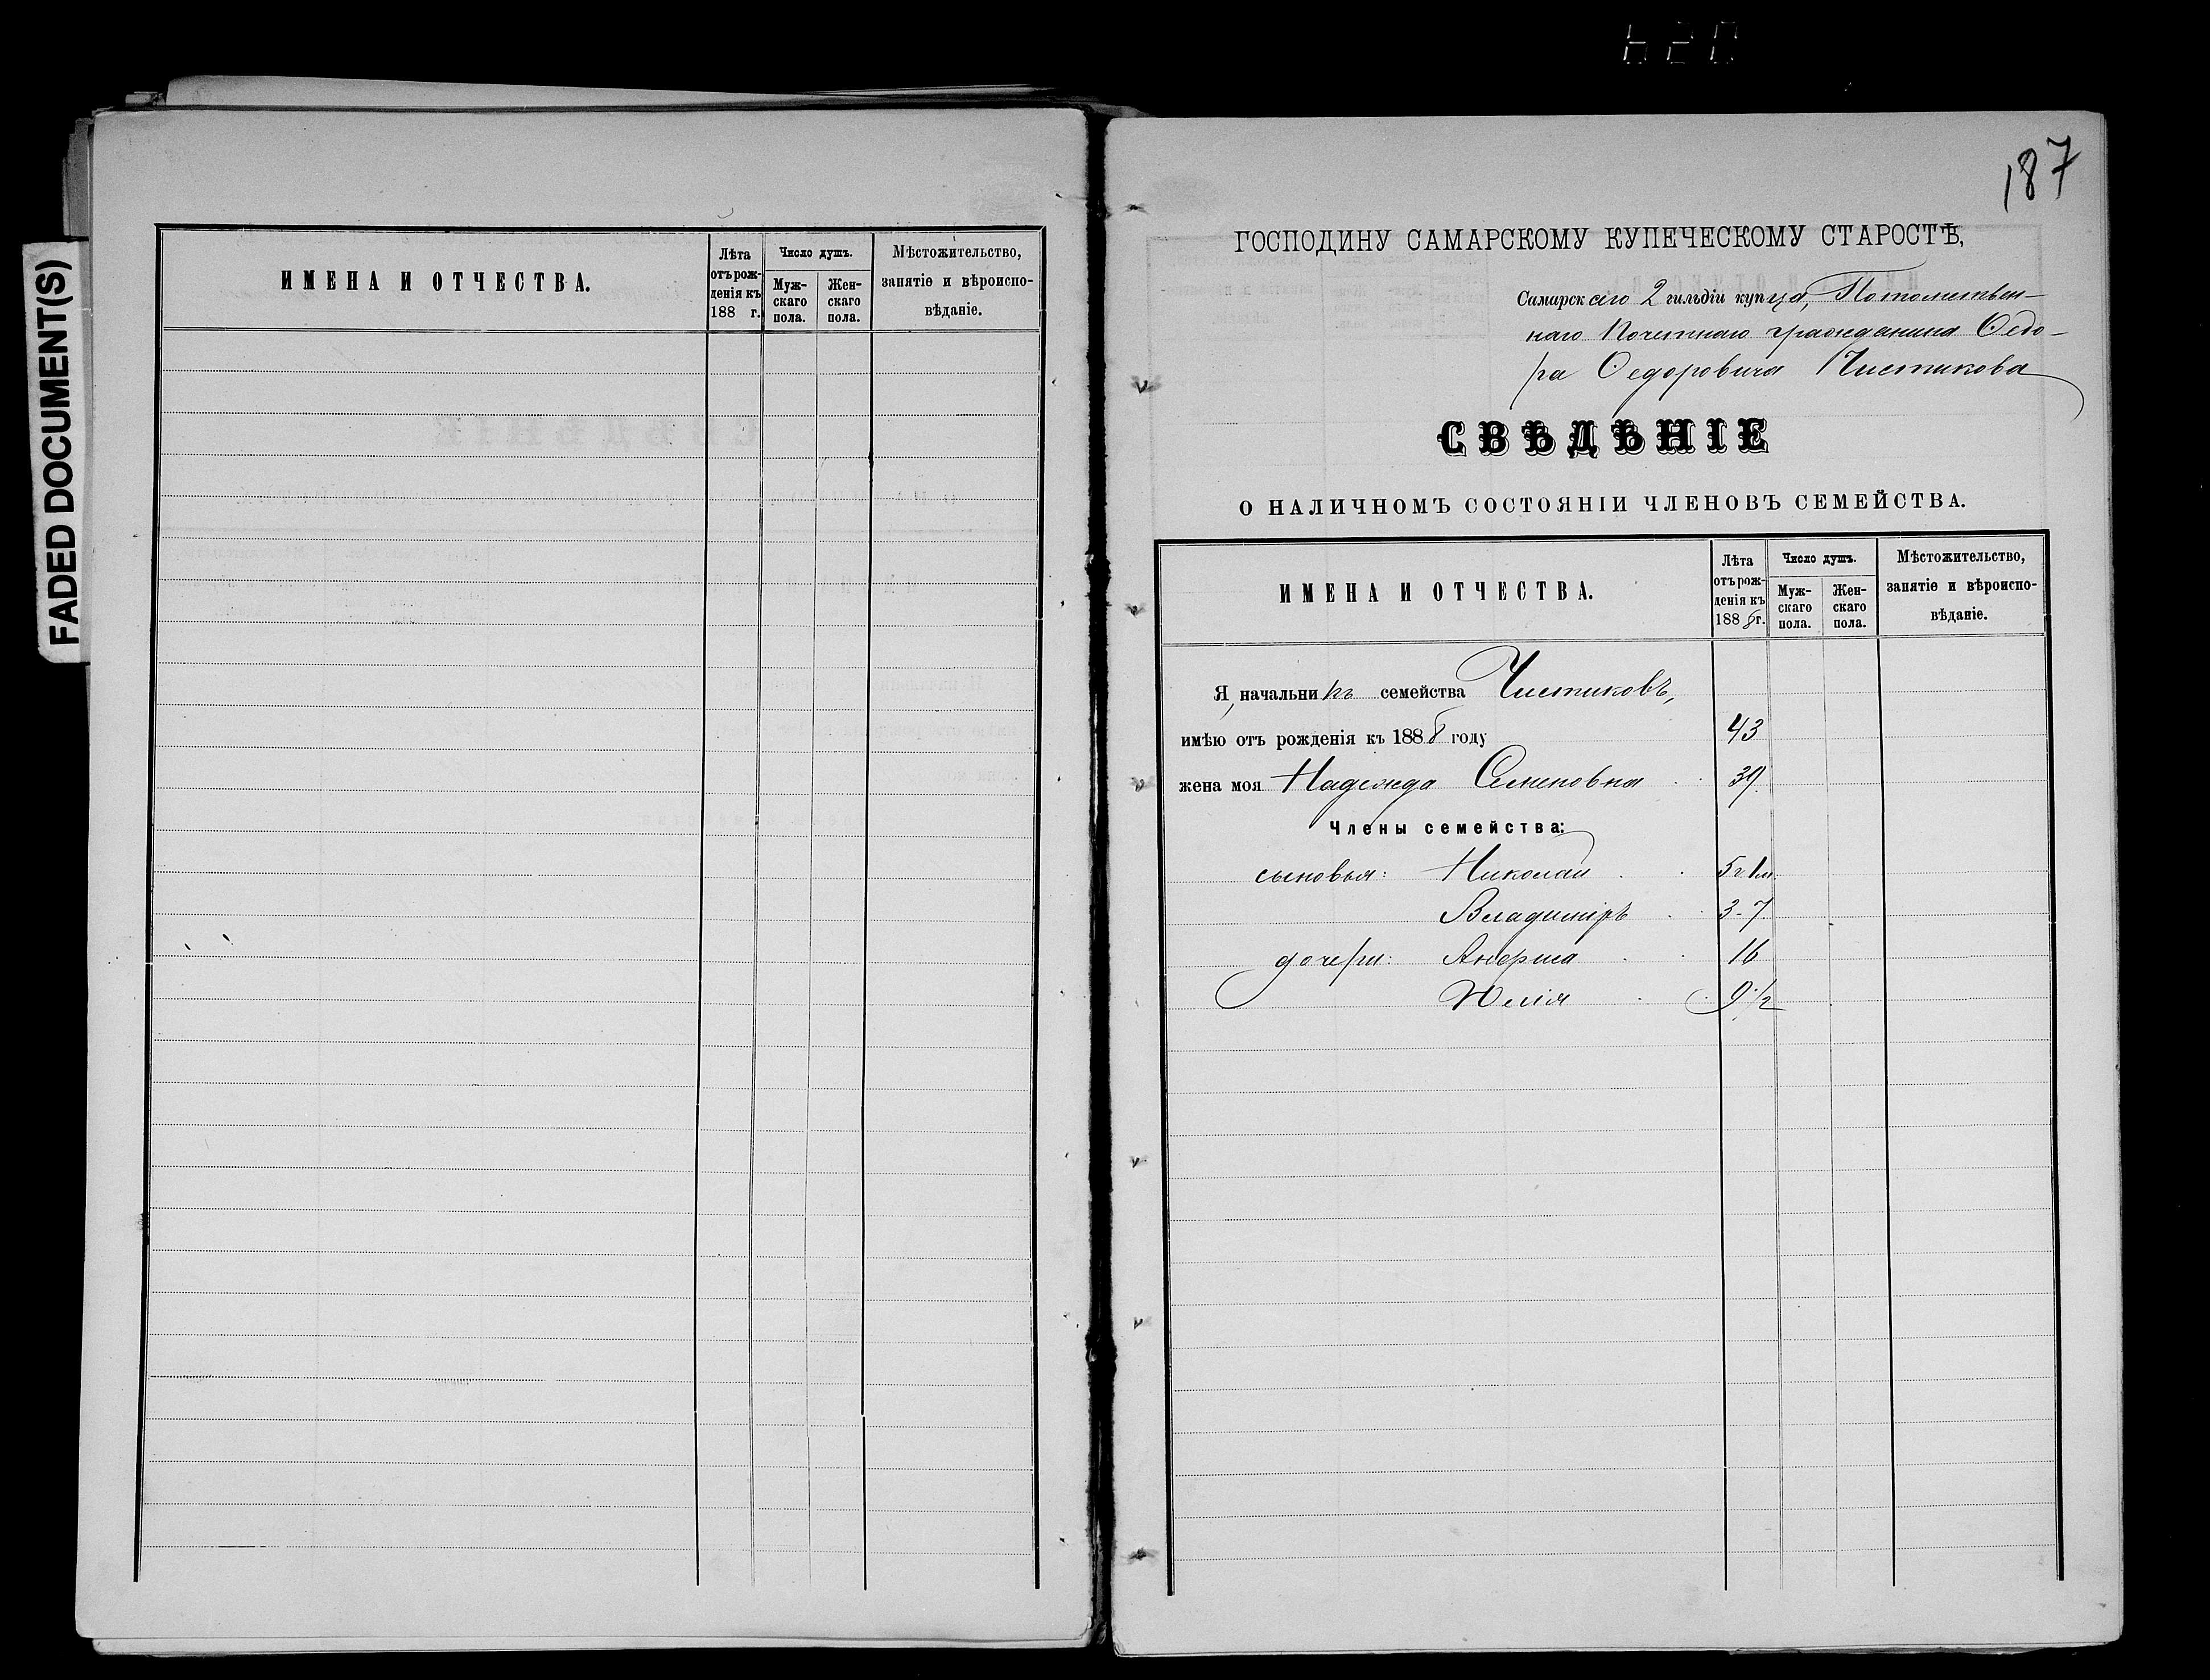 FADED DOCUMENT(S)
ИМЕНА И ОТЧЕСТВА.
Лѣта отъ рожденія къ 188 г.
Число душъ.
Мужскаго пола.
Женскаго пола.
Мѣстожительство, занятіе и вѣроисповѣданіе.
187
ГОСПОДИНУ САМАРСКОМУ КУПЕЧЕСКОМУ СТАРОСТѢ,
Самарскаго 2 гильдіи купца, Потомствен-
наго Почетнаго гражданина Ѳедо-
ра Ѳедоровича Чистикова
СВѢДѢНІЕ
О НАЛИЧНОМЪ СОСТОЯНІИ ЧЛЕНОВЪ СЕМЕЙСТВА.
ИМЕНА И ОТЧЕСТВА.
Лѣта отъ рожденія къ 1888 г.
Число душъ.
Мужскаго пола.
Женскаго пола.
Мѣстожительство, занятіе и вѣроисповѣданіе.
Я, начальникъ семейства Чистиковъ,
имѣю отъ рожденія къ 1888 году 43
жена моя Надежда Семеновна 39.
Члены семейства:
сыновья: Николай 5 г. 1 м.
Владиміръ 3 - 7
дочери: Анфиса 16
Юлія 9 1/2